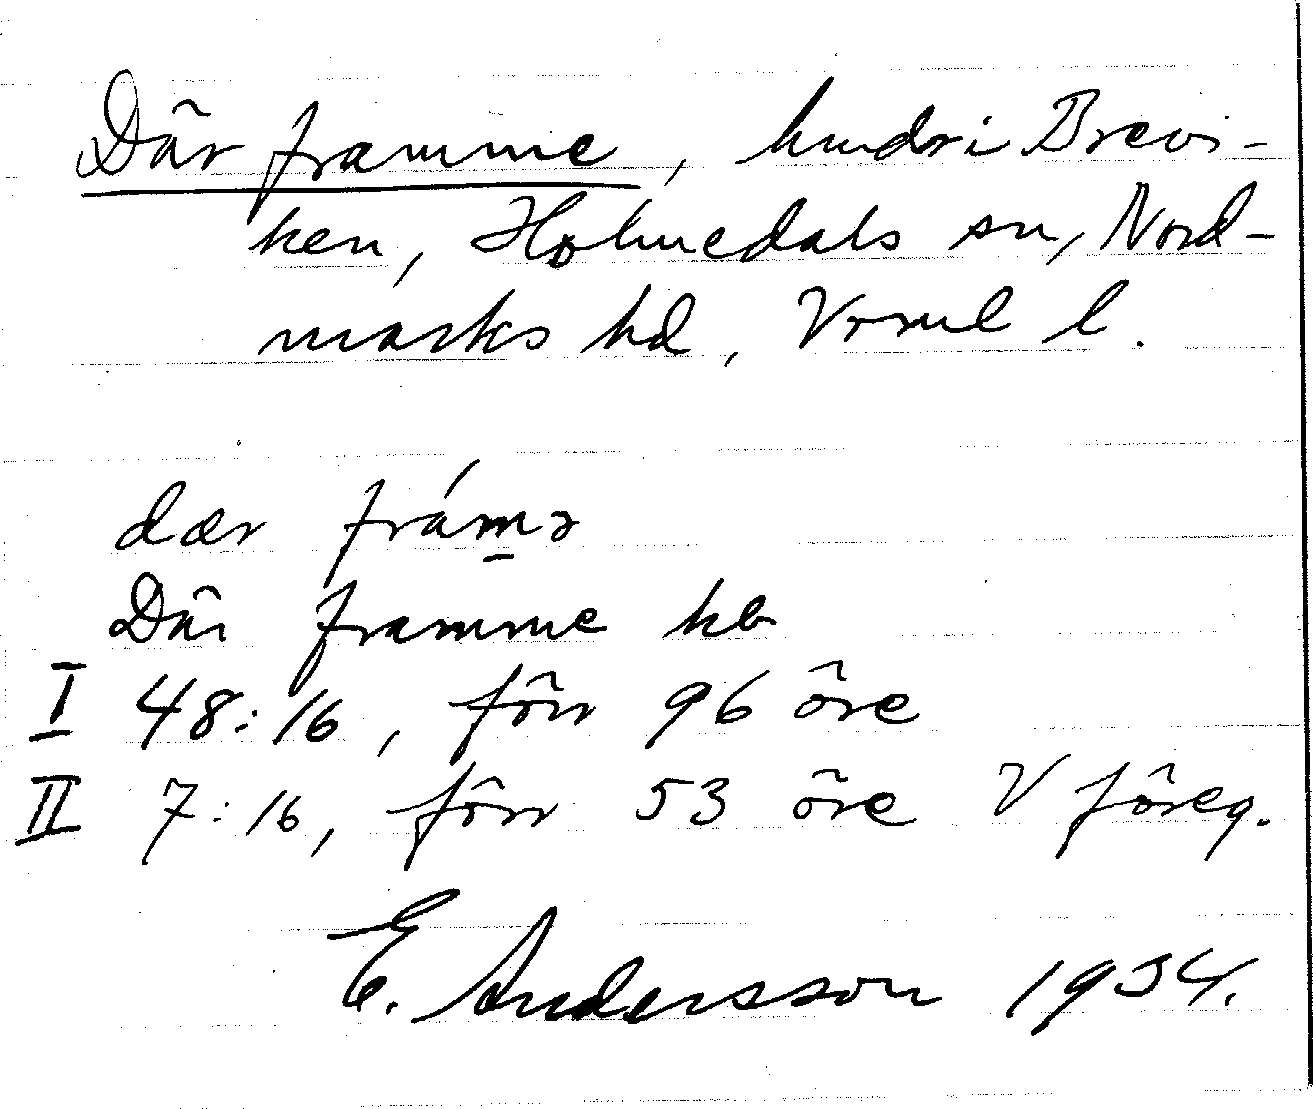 Där framme, hmdri Brevi-
ken, Holmedals sn, Nord-
marks hd, Vrml l.
dær frám̲ə
Där framme hb
I 48:16, förr 96 öre
II 7:16, förr 53 öre V föreg.
E. Andersson 1934.